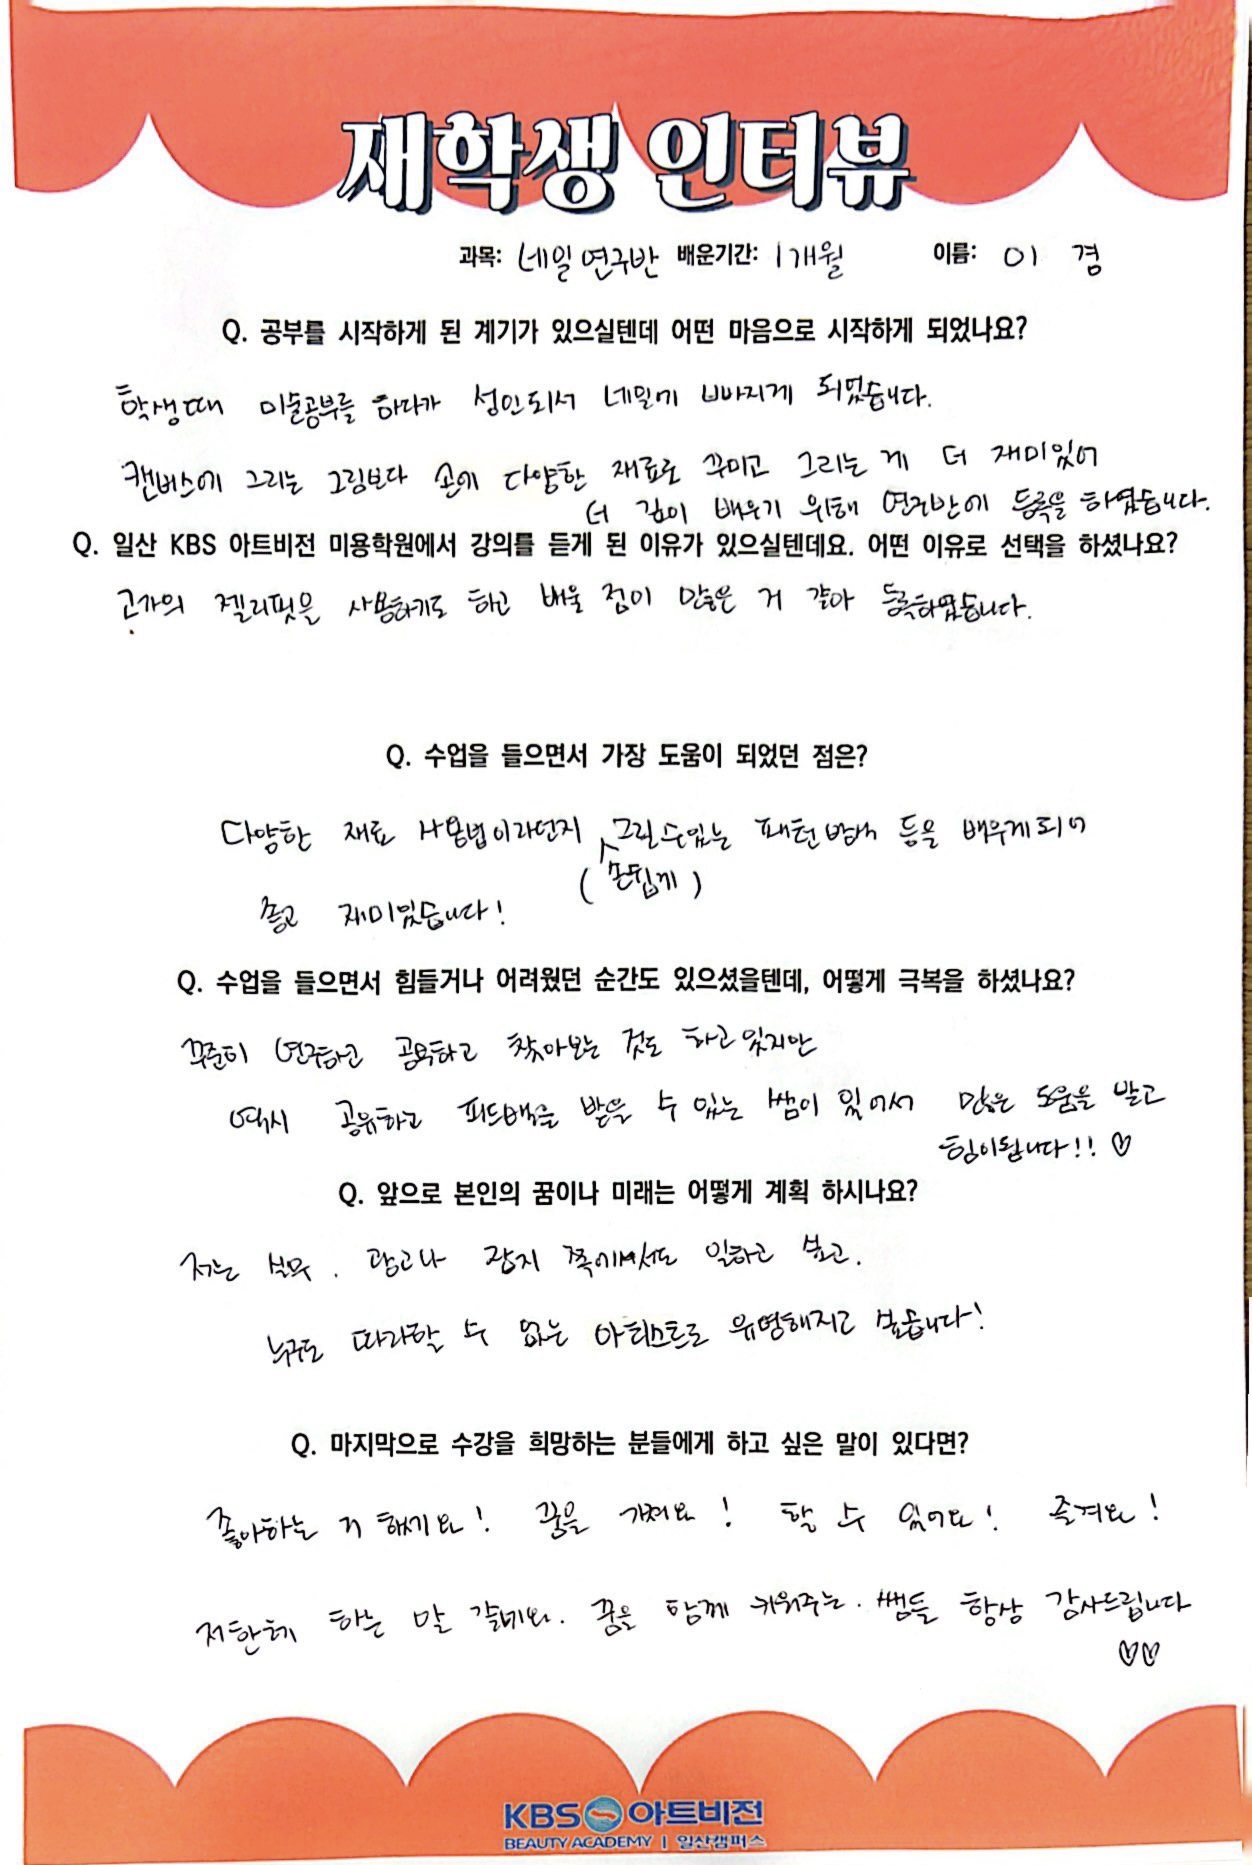 재학생 인터뷰
과목: 네일연구반 배운기간: 1개월 이름: 이 경
Q. 공부를 시작하게 된 계기가 있으실텐데 어떤 마음으로 시작하게 되었나요?
학생때 미술공부를 하다가 성인되서 네일에 빠지게 되었습니다.
캔버스에 그리는 그림보다 손에 다양한 재료로 꾸미고 그리는 게 더 재미있어
더 깊이 배우기 위해 연구반에 등록을 하였습니다.
Q. 일산 KBS 아트비전 미용학원에서 강의를 듣게 된 이유가 있으실텐데요. 어떤 이유로 선택을 하셨나요?
고가의 젤리핏을 사용하기도 하고 배울 점이 많은 거 같아 등록하였습니다.
Q. 수업을 들으면서 가장 도움이 되었던 점은?
다양한 재료 사용법이라던지 그릴수있는 패턴방법 등을 배우게되어
(손쉽게)
좋고 재미있습니다!
Q. 수업을 들으면서 힘들거나 어려웠던 순간도 있으셨을텐데, 어떻게 극복을 하셨나요?
꾸준히 연구하고 공부하고 찾아보는 것도 하고있지만
역시 공유하고 피드백을 받을 수 있는 쌤이 있어서 많은 도움을 받고
힘이됩니다!! ♡
Q. 앞으로 본인의 꿈이나 미래는 어떻게 계획 하시나요?
저는 광고나 잡지 쪽에서도 일하고 싶고.
누구도 따라할 수 없는 아티스트로 유명해지고 싶습니다!
Q. 마지막으로 수강을 희망하는 분들에게 하고 싶은 말이 있다면?
좋아하는 거 하세요! 꿈을 가져요! 할 수 있어요! 즐겨요!
저한테 하는 말 같네요. 꿈을 함께 키워주는. 쌤들 항상 감사드립니다
♡♡
KBS 아트비전
BEAUTY ACADEMY | 일산캠퍼스